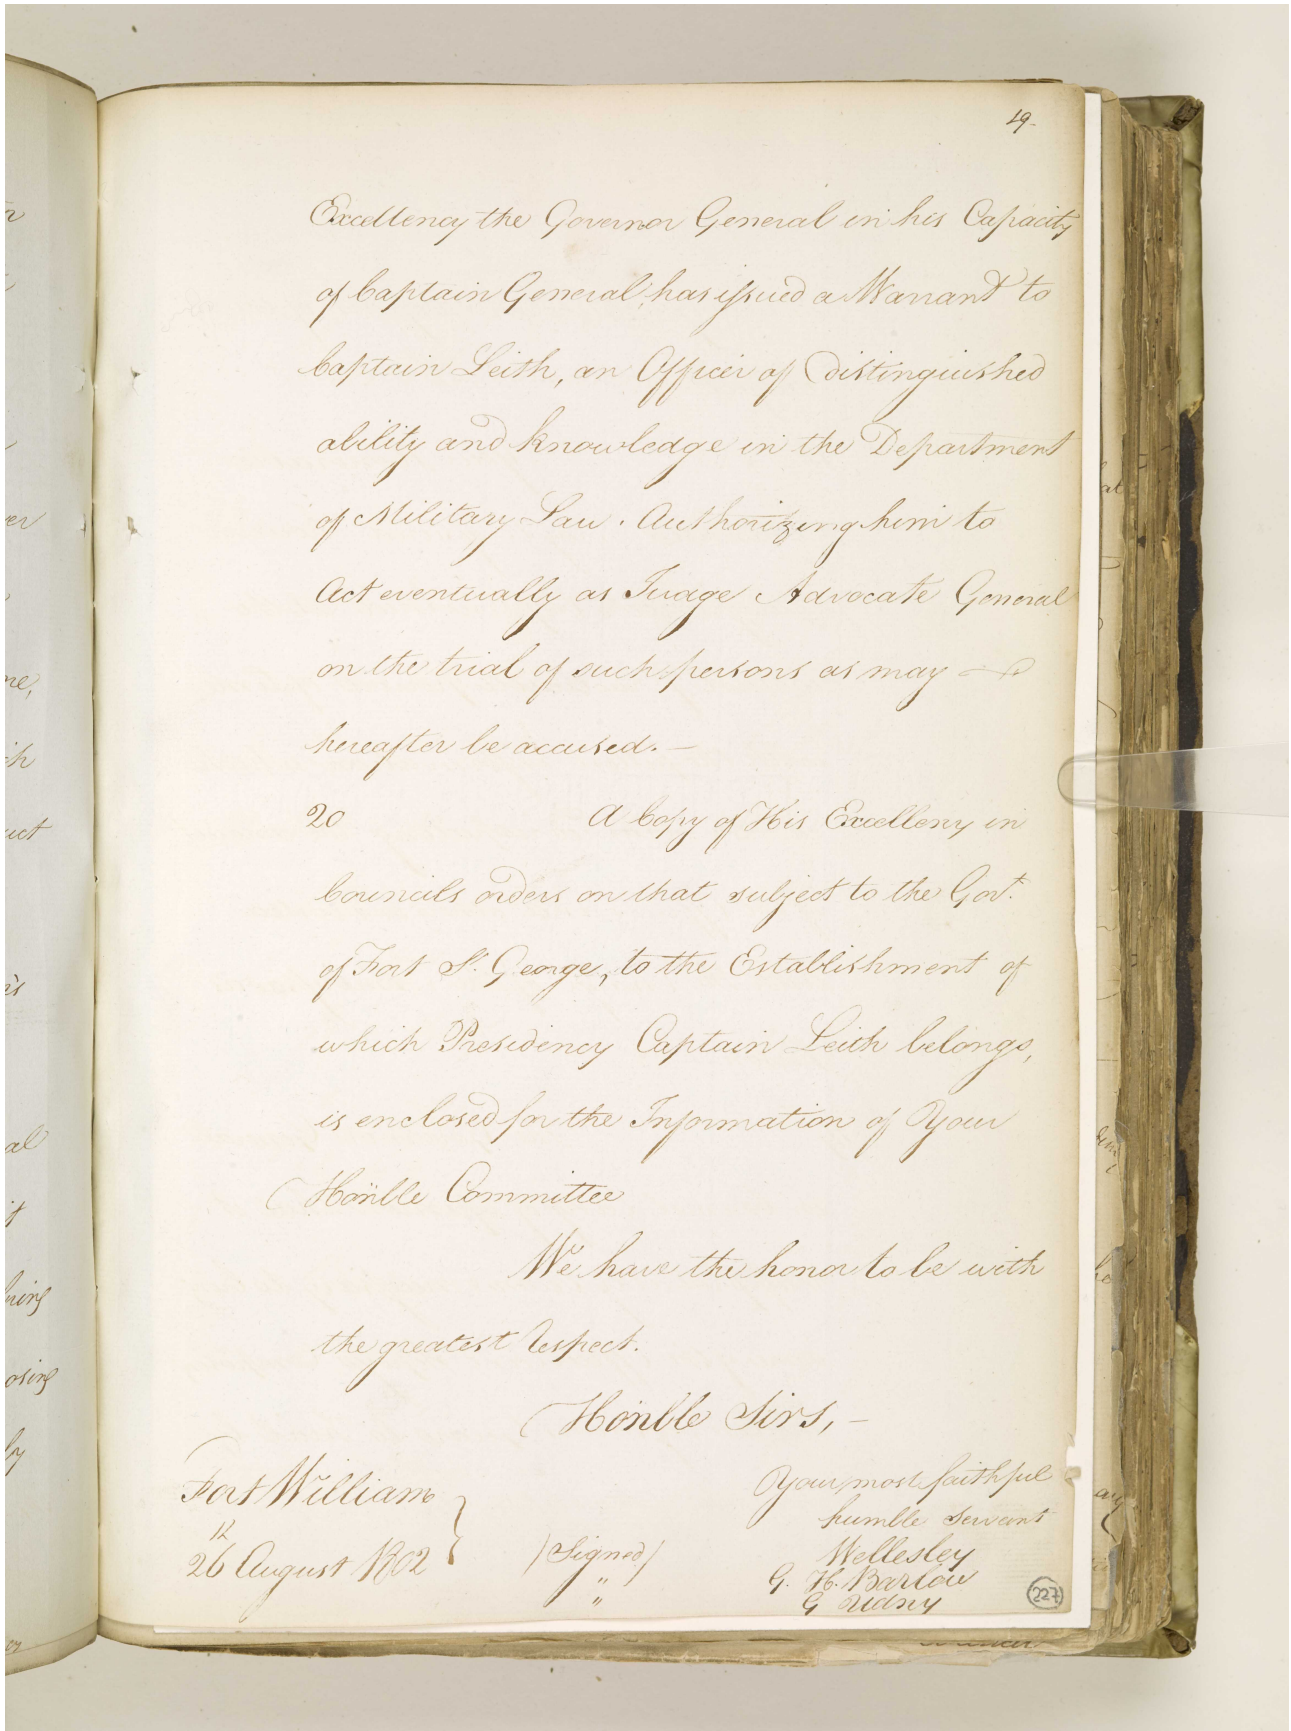 19.
Excellency the Governor General in his Capacity
of Captain General has issued a Warrant to
Captain Leith, an Officer of distinguished
ability and knowledge in the Department
of Military Law. Authorizing him to
Act eventually as Judge Advocate General
on the trial of such persons as may
hereafter be accused. —
20 A Copy of His Excelleny in
Councils orders on that subject to the Govt.
of Fort St. George, to the Establishment of
which Presidency Captain Leith belongs,
is enclosed for the Information of Your
Honble Committee
We have the honor to be with
the greatest Respect.
Honble Sirs, —
Your most faithful
humble servant
Fort William
26 August 1802
(Signed) Wellesley
" G. H. Barlow
" G Udny
227